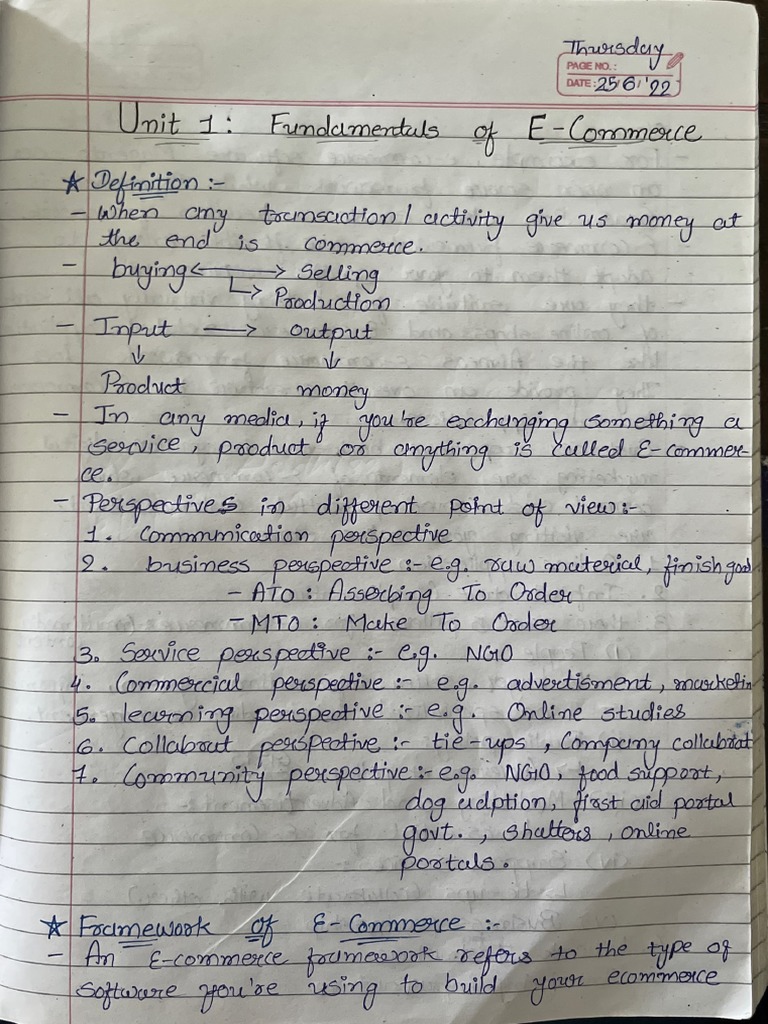 Thursday
PAGE NO.:
DATE: 25/6/'22
Unit 1: Fundamentals of E-Commerce
★ Definition :-
- When any transaction / activity give us money at
the end is commerce.
- buying ←→ Selling
↳ Production
- Input → output
↓ ↓
Product money
- In any media, if you're exchanging something a
service, product or anything is called E-commer-
ce.
- Perspectives in different point of view :-
1. Communication perspective
2. business perspective :- e.g. raw material, finish good
- ATO : Asserbing To Order
- MTO : Make To Order
3. Service perspective :- e.g. NGO
4. Commercial perspective :- e.g. advertisment, marketin
5. learning perspective :- e.g. Online studies
6. Collaborat perspective :- tie-ups, Company collaborat
7. Community perspective :- e.g. NGO, food support,
dog adption, first aid portal
govt., shalters, online
portals.
★ Framework of E-Commerce :-
- An E-commerce framework refers to the type of
software you're using to build your ecommerce